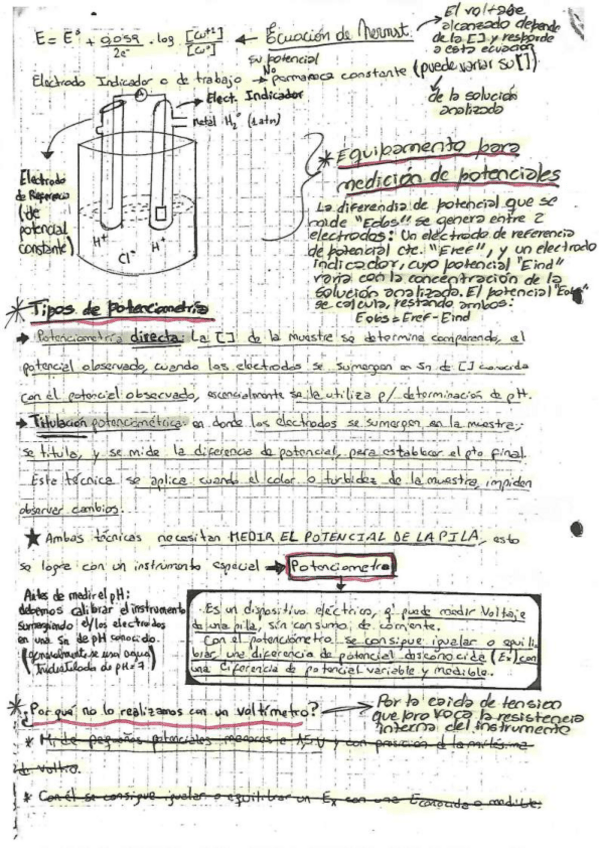 E = E° + 0.059/2e⁻ . log [Cu⁺²]/[Cu°] ← Ecuación de Nernst.
El voltaje
alcanzado depende
de la [ ] y responde
a esta ecuación
(puede variar su [ ])
de la solución
analizada
su potencial
No
Electrodo Indicador o de trabajo → permanezca constante
A
Elect. Indicador
metal H₂° (1 atn)
Electrodo
de Referencia
(de
potencial
constante)
H⁺
Cl⁻
H⁺
* Equipamento para
medición de potenciales
La diferencia de potencial que se
mide "Eobs" se genera entre 2
electrodos: Un electrodo de referencia
de potencial cte. "Eref", y un electrodo
indicador, cuyo potencial "Eind"
varia con la concentración de la
solución analizada. El potencial "Eobs"
se calcula, restando ambos:
Eobs = Eref - Eind
* Tipos de potenciometría
→ Potenciometría directa: La [ ] de la muestre se determina comparando, el
potencial observado, cuando los electrodos se sumergen en Sn de [ ] conocida
con el potencial observado, escencialmente se la utiliza p/ determinación de pH.
→ Titulación potenciométrica: en donde los electrodos se sumergen en la muestre;
se titula, y se mide la diferencia de potencial, para establecer el pto final.
Este técnica se aplica cuando el color o turbidez de la muestra, impiden
observar cambios.
★ Ambas técnicas necesitan MEDIR EL POTENCIAL DE LA PILA, esto
se logra con un instrumento especial → Potenciometro
Antes de medir el pH:
debemos calibrar el instrumento
sumergiendo el/los electrodos
en una Sn de pH conocido.
(generalmente se usa agua)
Es un dispositivo eléctrico, q' puede medir Voltaje
de una pila, sin consumo de corriente.
Con el potenciómetro se consigue igualar o equili-
brar una diferencia de potencial desconocide (Ex) con
una diferencia de potencial variable y medible.
* ¿Por qué no lo realizamos con un voltímetro? → Por la caida de tensión
que provoca la resistencia
interna del instrumento
* Mide pequeños potenciales menores a 1,5 V y con posición a la milésima
de voltio.
* Con él se consigue igualar o equilibrar un Ex con una Econocida o medible.